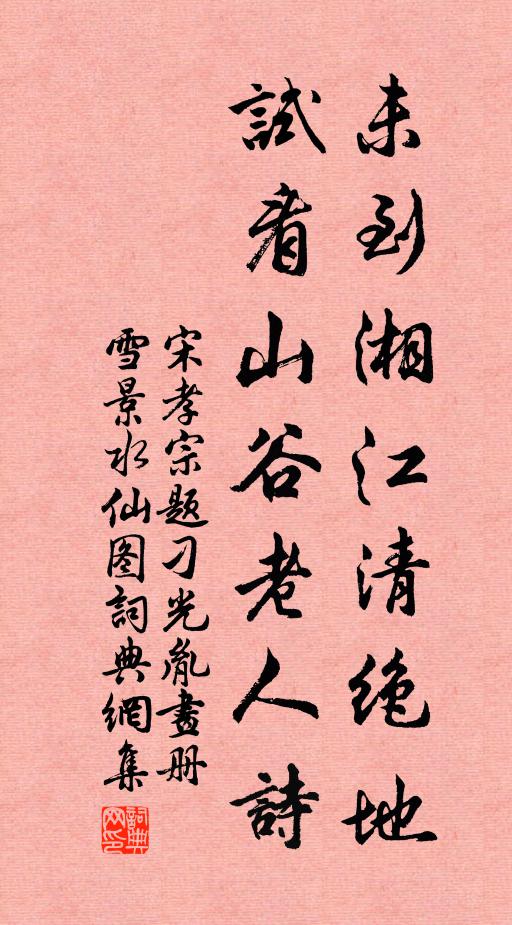 未到湘江清绝地
試看山谷老人詩
宋孝宗題刁光胤畫册
雪景水仙图詞典網集
詞典网印